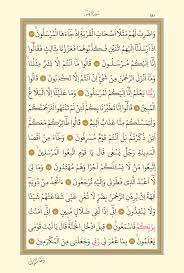 سورة يس
واضرب لهم مثلا أصحاب القرية إذ جاءها المرسلون
إذ أرسلنا إليهم اثنين فكذبوهما فعززنا بثالث فقالوا
إنا إليكم مرسلون قالوا ما أنتم إلا بشر مثلنا
وما أنزل الرحمن من شيء إن أنتم إلا تكذبون قالوا
ربنا يعلم إنا إليكم لمرسلون وما علينا إلا البلاغ
المبين قالوا إنا تطيرنا بكم لئن لم تنتهوا لنرجمنكم
وليمسنكم منا عذاب أليم قالوا طائركم معكم
أئن ذكرتم بل أنتم قوم مسرفون وجاء من أقصا
المدينة رجل يسعى قال يا قوم اتبعوا المرسلين
اتبعوا من لا يسئلكم أجرا وهم مهتدون وما لي
لا أعبد الذي فطرني وإليه ترجعون أأتخذ من دونه
آلهة إن يردن الرحمن بضر لا تغن عني شفاعتهم
شيئا ولا ينقذون إني إذا لفي ضلال مبين إني آمنت
بربكم فاسمعون قيل ادخل الجنة قال يا ليت قومي
يعلمون بما غفر لي ربي وجعلني من المكرمين